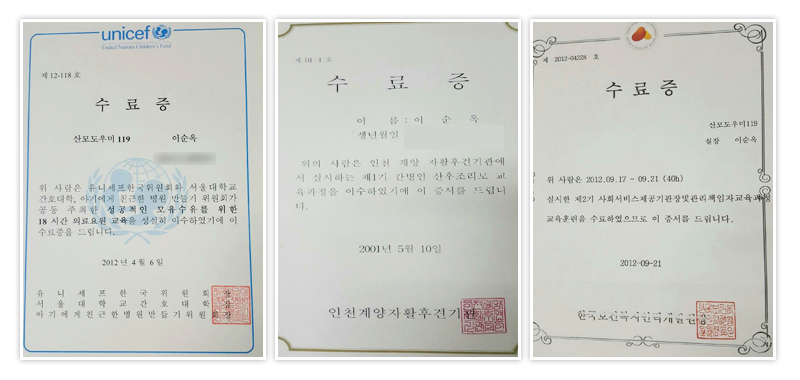 unicef
United Nations Children's Fund
제 12-118 호
수 료 증
산모도우미 119 이순옥
위 사람은 유니세프한국위원회와 서울대학교
간호대학, 아기에게 친근한 병원 만들기 위원회가
공동 주최한 성공적인 모유수유를 위한
18 시간 의료요원 교육을 성실히 이수하였기에 이
수료증을 드립니다.
2012 년 4 월 6 일
유 니 세 프 한 국 위 원 회
서 울 대 학 교 간 호 대 학
아기에게친근한병원만들기위원회
수 료 증
이 름 : 이 순 옥
생년월일
위의 사람은 인천 계양 자활후견기관에
서 실시하는 제1기 간병인 산후조리모 교
육과정을 이수하였기에 이 증서를 드립니
다.
2001년 5월 10일
인천계양자활후견기관
제 2012-04328 호
수 료 증
산모도우미119
실장 이순옥
위 사람은 2012.09.17 - 09.21 (40h)
실시한 제2기 사회서비스제공기관장및관리책임자교육과정
교육훈련을 수료하였으므로 이 증서를 드립니다.
2012-09-21
한국보건복지인력개발원장